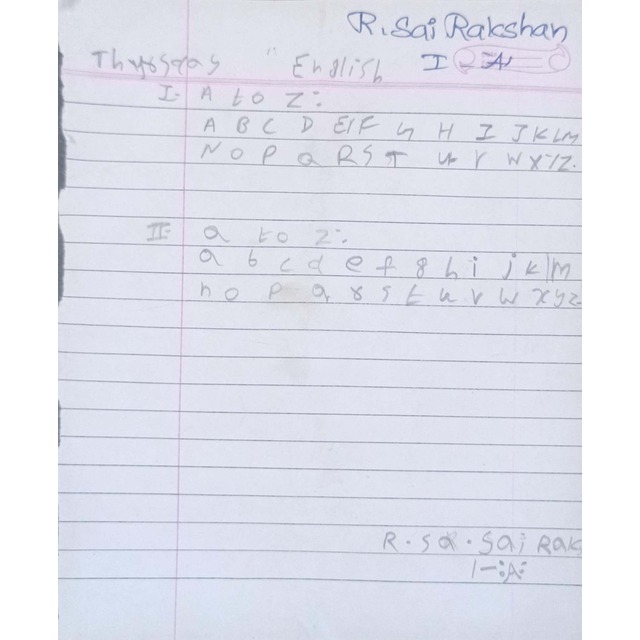 R. Sai Rakshan
Thyrsday " English I
I- A to Z:
A B C D E F G H I J K L M
N O P Q R S T U V W X Y Z.
II- a to z:
a b c d e f g h i j k l m
n o p q r s t u v w x y z
R. Sa. Sai Rak
1-A: